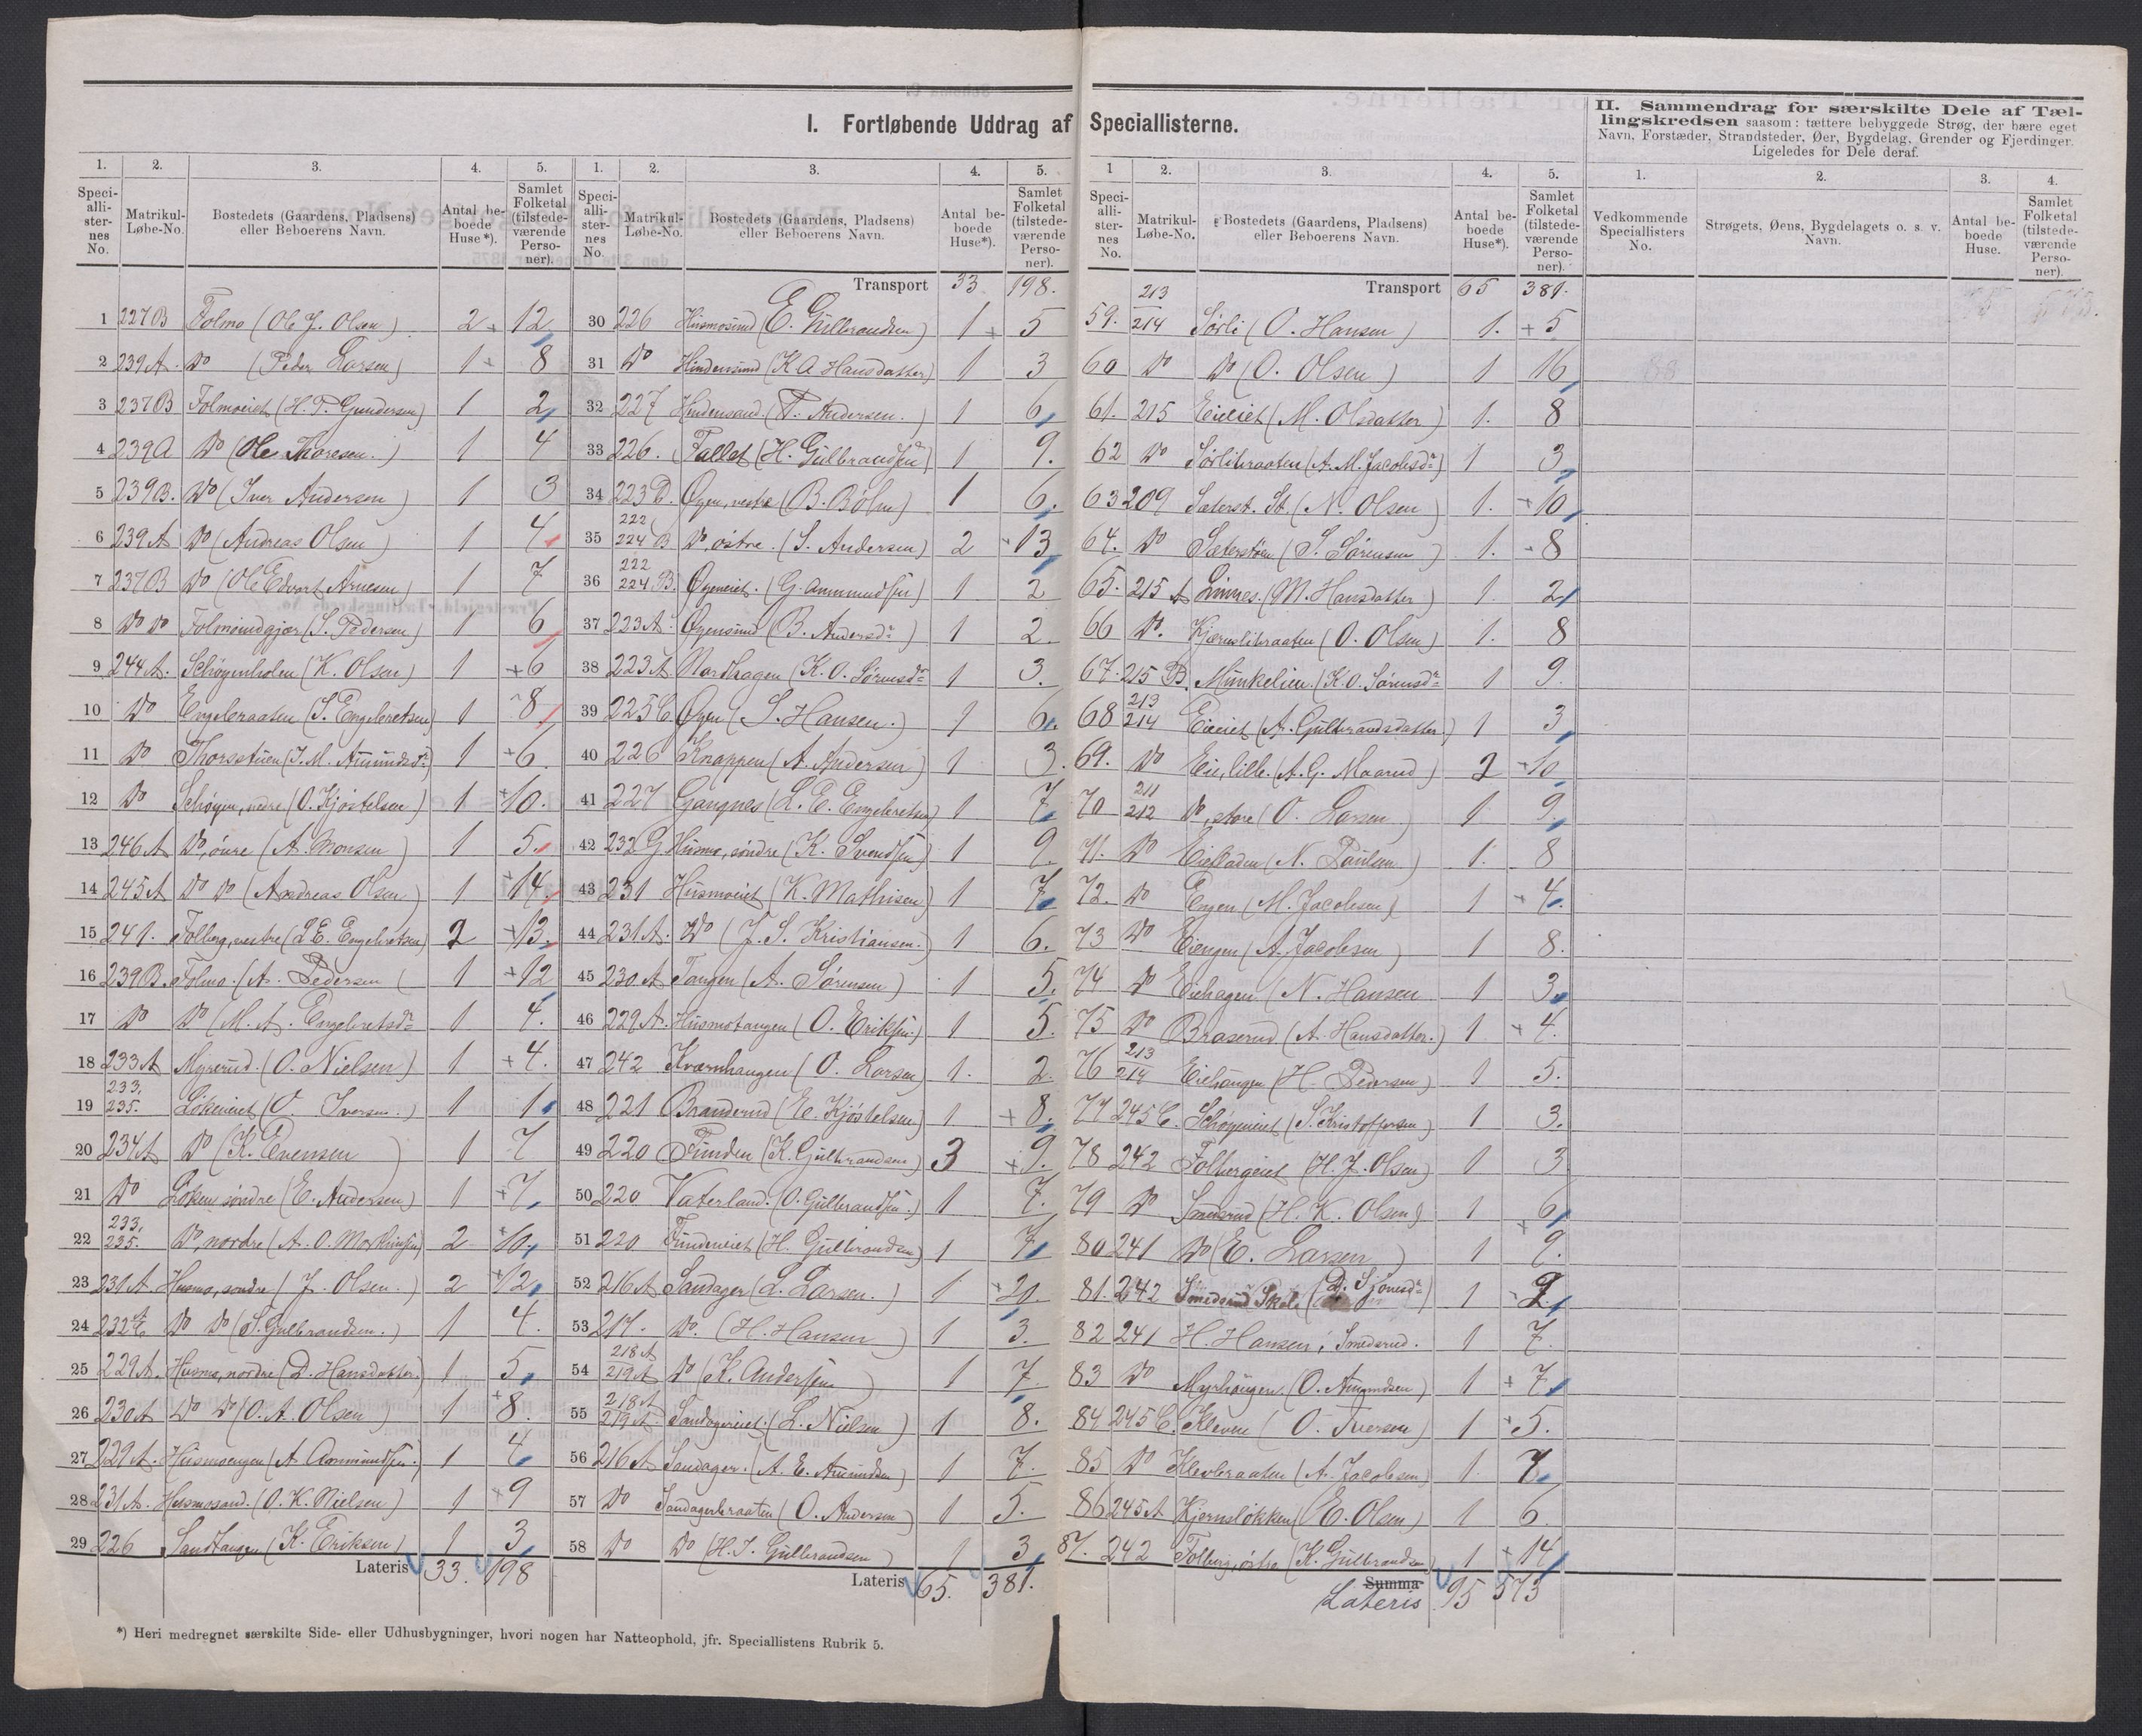 I. Fortløbende Uddrag af Speciallisterne.
II. Sammendrag for særskilte Dele af Tæl-
lingskredsen saasom: tættere bebyggede Strøg, der bære eget
Navn, Forstæder, Strandsteder, Øer, Bygdelag, Grender og Fjerdinger.
Ligeledes for Dele deraf.
1. 2. 3. 4. 5.
Speci-alli-ster-nes No. Matrikul-Løbe-No. Bostedets (Gaardens, Pladsens) eller Beboerens Navn. Antal be-boede Huse*). Samlet Folketal (tilstede-værende Perso-ner).
1 227B Folmo (Ole J. Olsen) 2 12
2 239A. Do (Peder Larsen) 1 8
3 237B Folmoeiet (H. P. Gundersen) 1 2
4 239A Do (Ole Thoresen.) 1 4
5 239B. Do (Iver Andersen) 1 3
6 239A Do (Andreas Olsen) 1 4
7 237B Do (Ole Edvart Arnesen) 1 7
8 Do Do (S. Pedersen) 1 6
9 244A. Schøyenholen (K. Olsen) 1 +6
10 Do Engebraaten (S. Engebretsen) 1 8
11 Do Thorsstuen (J. M. Amundsdr) 1 +6.
12 Do Schøyen, nedre (O. Kjøstelsen) 1 +10.
13 246A Do, övre (A. Monsen) 1 5
14 245A Do Do (Andreas Olsen) 1 +14
15 241. Folberg, vestre (L E. Engebretsen) 2 +13
16 239B. Folmo. (A. Pedersen ( 1 +12
17 Do Do (M. A. Engebretsdr 1 4.
18 233A Myrerud. (O. Nielsen) 1 +4.
19 233, 235. Lökeneiet (O. Iversen.) 1 1
20 234A Do (K. Evensen) 1 7
21 Do Löken, søndre (E. Andersen) 1 +7
22 233, 235. Do, nordre (A. O. Marthinsen) 2 +10
23 231A. Husmo, søndre (J. Olsen.) 2 +12
24 232 Do Do (S. Gulbrandsen.) 1 4.
25 229A. Husmo, nordre (D. Hansdatter) 1 5
26 230A Do Do (O. A. Olsen) 1 +8.
27 229A. Husmoengen (A. Ammundsen.) 1 4
28 231A. Husmosand. (O. K. Nielsen) 1 +9
29 226 Sandtangen (K. Eriksen) 1 3
Lateris 33. 198
*) Heri medregnet særskilte Side- eller Udhusbygninger, hvori nogen har Natteophold, jfr. Speciallistens Rubrik 5.
1. 2. 3. 4. 5.
Speci-alli-ster-nes No. Matrikul-Løbe-No. Bostedets (Gaardens, Pladsens) eller Beboerens Navn. Antal be-boede Huse*). Samlet Folketal (tilstede-værende Perso-ner).
Transport 33 198.
30 226 Husmosund (E. Gulbrandsen) 1 + 5
31 Do Hindensund (K. A Hansdatter) 1 3
32 227 Hindensand. (T. Andersen.) 1 6
33 226. Fallet (H. Gulbrandsen) 1 9.
34 223B. Øyen, vestre (B. Bølm) 1 6.
35 222, 224 B Do, østre. (S. Andersen) 2 13
36 222 224.B. Øyeneiet. (G. Ammundsen) 1 2
37 223A. Øyensund (B. Andersdr) 1 2.
38 223A Nordhagen (K. O. Sörensdr 1 3.
39 225C Øyen (S. Hansen.) 1 6.
40 226 Knappen (A. Andersen) 1 3.
41 227 Gangnes (L. E. Engebretsen) 1 7
42 232G Husmo, søndre (K. Svendsen) 1 9.
43 231 Husmoeiet (K. Mathisen) 1 7
44 231A. Do (J. S. Kristiansen.) 1 6.
45 230A Tangen (A. Sörensen) 1 5.
46 229A. Husmotangen (O. Eriksen.) 1 5.
47 242 Kværnhaugen (O. Larsen) 1. 2.
48 221 Branderud (E. Kjöstelsen) 1 + 8.
49 220 Funden (K. Gulbrandsen) 3 +9.
50 220 Vaterland. (O. Gulbrandsen.) 1 7.
51 220 Fundeneiet (H. Gulbrandsen) 1 7
52 216A Sandager (L. Larsen.) 1 +20.
53 217. Do. (H. Hansen) 1 3.
54 218A 219A Do (K. Andersen) 1 7
55 218A 219A Sandagereiet. (L. Nielsen) 1 8.
56 216A Sandager. (A. E. Amundsen) 1 7.
57 Do Sandagerbraaten (O. Andersen) 1 5.
58 Do Do (H. J. Gulbrandsen) 1 3
Lateris 65. 381.
1 2. 3. 4. 5.
Speci-alli-ster-nes No. Matrikul-Løbe-No. Bostedets (Gaardens, Pladsens) eller Beboerens Navn. Antal be-boede Huse*). Samlet Folketal (tilstede-værende Perso-ner).
Transport 65 381.
59. 213 214 Sørli (O. Hansen) 1. + 5
60 Do Do (O. Olsen) 1 16
61. 215 Eieeiet (M. Olsdatter) 1. 8
62 Do Sørlibraaten (A. M. Jacobsdr) 1 3
63 209 Sæterst. St. (N. Olsen) 1. +10
64. Do Sæterstøen (S. Sörensen) 1. 8
65. 215 A Linnes. (M. Hansdatter) 1. 2
66 Do. Kjærnslibraaten (O. Olsen) 1. 8
67. 215 B. Munkelien. (K. O. Sörensdr 1 9.
68 213 214 Eieeiet (A. Gulbrandsdatter) 1 3
69. Do Eie, lille. (A. G. Maarud) 2 +10
70 211 212 Do, store (O. Larsen) 1 9.
71. Do Eieladen (N. Paulsen) 1. 8
72. Do Engen (M. Jacobsen) 1 + 4.
73 Do Eiengen (A. Jacobsen) 1 8.
74 Do Eiehagen (N. Hansen 1 3
75 Do Braserud (A. Hansdatter.) 1 + 4.
76 213 214 Eiehaugen (H. Pedersen) 1 5.
77 245C. Schøyeneiet (S. Kristoffersen) 1 3.
78 242 Folbergeiet (H. J. Olsen) 1 3
79 Do Smedsrud (H. K. Olsen) 1 6
80 241 Do (E. Larsen) 1 + 9.
81. 242 Smedsrud Skole 1 2
82 241 H. Hansen, i Smedsrud. 1 7.
83 Do Myrhaugen (O. Amundsen) 1 + 7
84 245C. Klevne (O. Iversen) 1 + 5.
85 Do Klevbraaten (A. Jacobsen) 1. 7
86 245A Kjernsløkken (E. Olsen) 1 6.
87. 242 Folberg, østre (K. Gulbrandsen) 1 + 14
Summa
Lateris 95 573
1. 2. 3. 4.
Vedkommende Speciallisters No. Strøgets, Øens, Bygdelagets o. s. v. Navn. Antal be-boede Huse. Samlet Folketal (tilstede-værende Perso-ner).